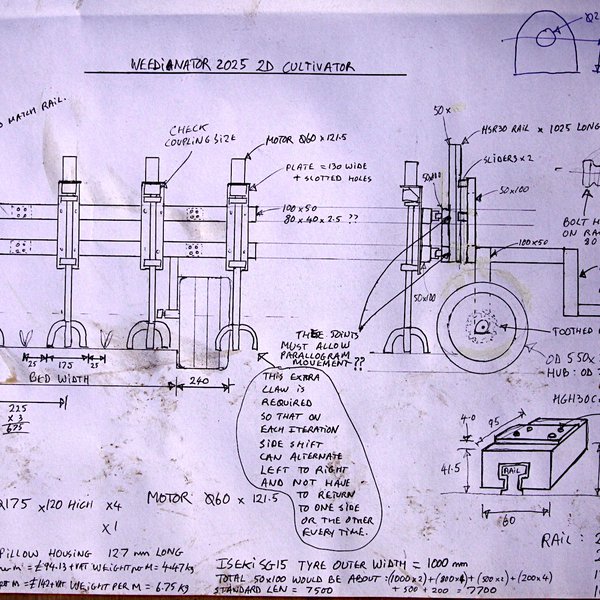 WEEDINATOR 2025 2D CULTIVATOR
MATCH RAIL.
CHECK
COUPLING SIZE
MOTOR Ø60 × 121.5
PLATE = 130 WIDE
+ SLOTTED HOLES
100 × 50
80 × 40 × 2.5 ??
50×
HSR30 RAIL × 1025 LONG
SLIDERS × 2
50×100
50×100
100×50
50×100
BOLT
ON RA
80
TOOTHED
OD 550×
HUB: OD
HGH30C
THESE JOINTS
MUST ALLOW
PARALLOGRAM
MOVEMENT ??
25
175
25
BED WIDTH
240
225
× 3
675
THIS EXTRA
CLAW IS
REQUIRED
SO THAT ON
EACH ITERATION
SIDE SHIFT
CAN ALTERNATE
LEFT TO RIGHT
AND NOT HAVE
TO RETURN
TO ONE SIDE
OR THE OTHER
EVERY TIME.
4.0
95
41.5
RAIL
60
Ø175 × 120 HIGH × 4
× 1
MOTOR Ø60 × 121.5
RAIL:
PILLOW HOUSING 127 mm LONG
= £94.13 + VAT WEIGHT PER M = 4.47 kg
= £142 + VAT WEIGHT PER M = 6.75 kg
ISEKI SG15 TYRE OUTER WIDTH = 1000 mm
TOTAL 50×100 WOULD BE ABOUT : (1000×2) + (800×4) + (500×2) + (200×4)
+ 500 + 200 = 7700
STANDARD LEN = 7500